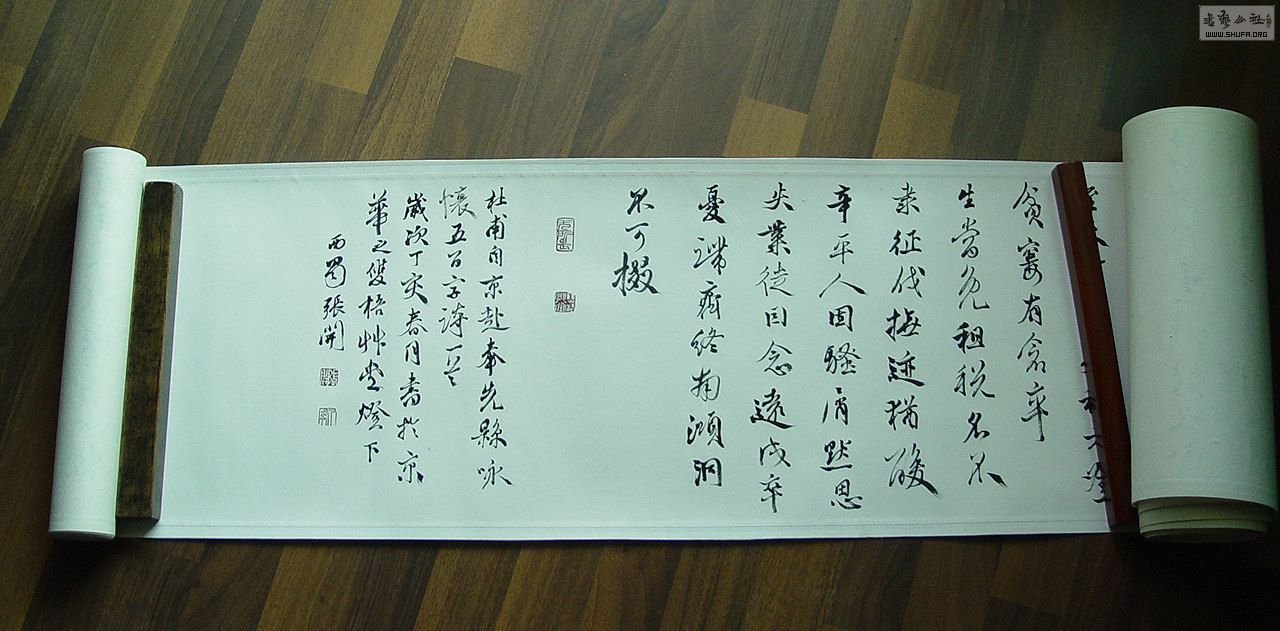 貧窶有倉卒
生常免租税名不
隶征伐撫迹猶酸
辛平人固騷屑默思
失業徒因念遠戍卒
憂端齊終南澒洞
不可掇
杜甫自京赴奉先縣咏
懷五百字詩一首
歲次丁亥春月書於京
華之雙梧艸堂燈下
西蜀張開
書藝公社
WWW.SHUFA.ORG